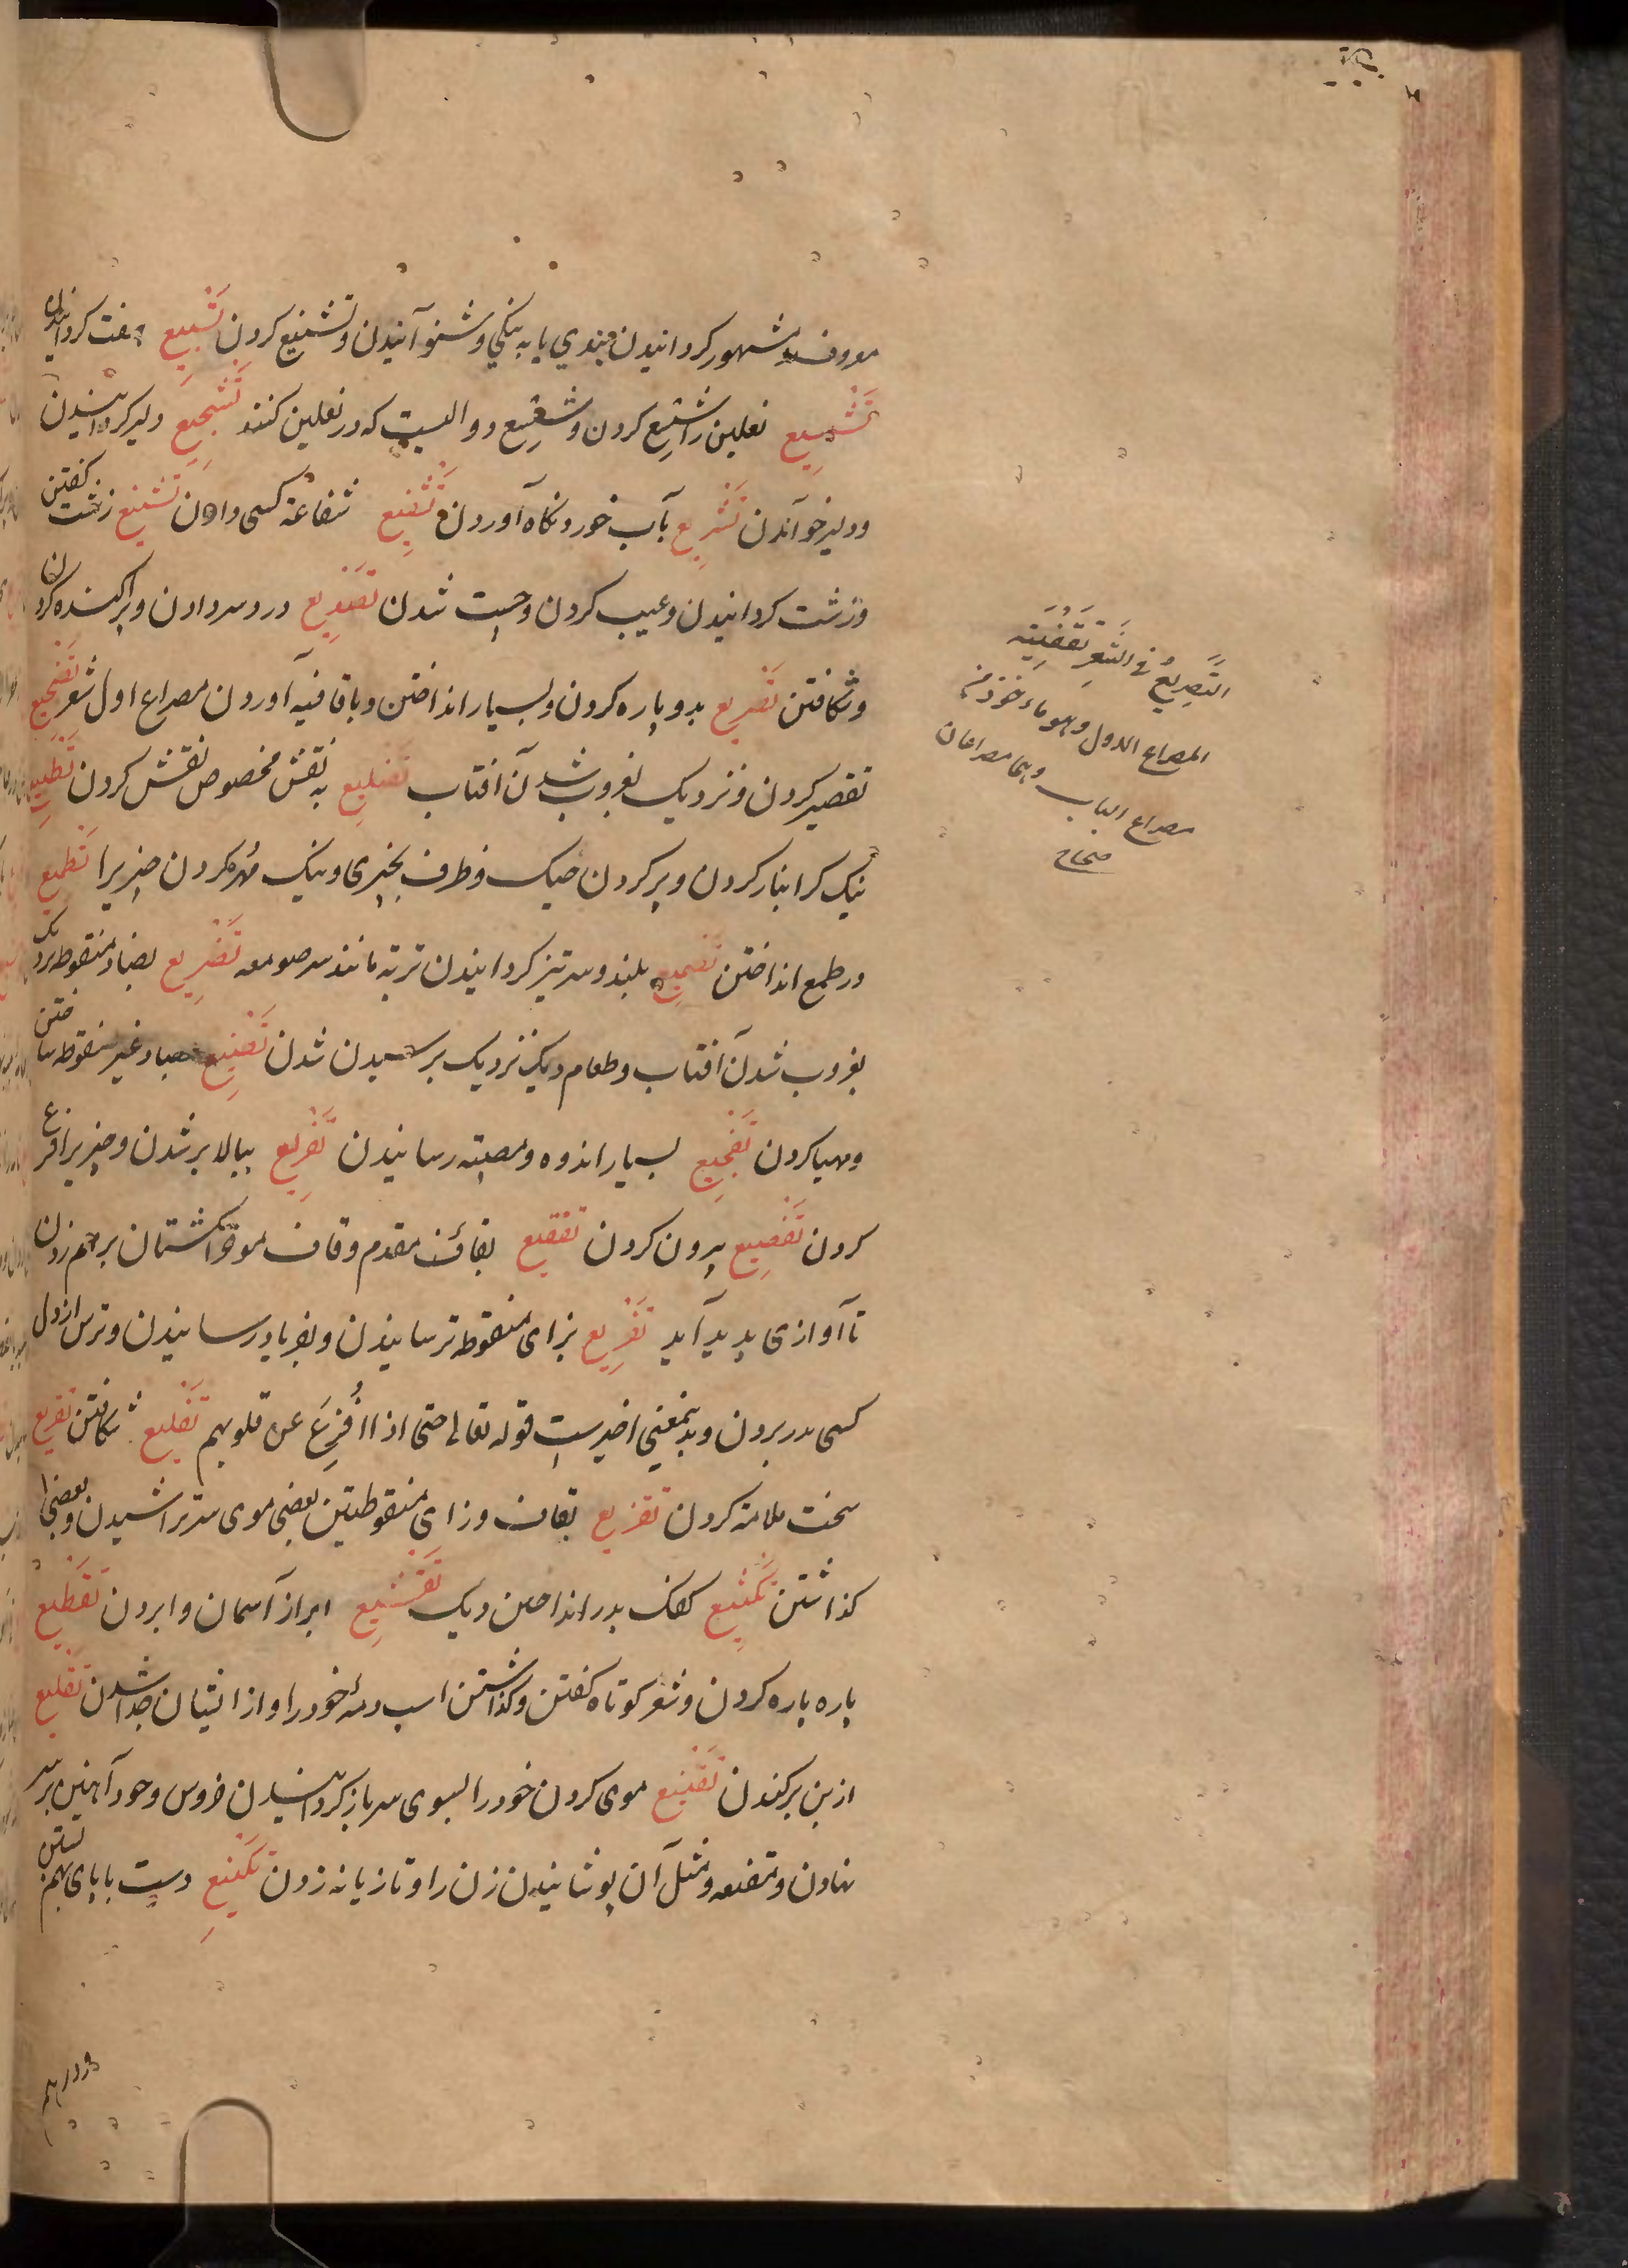 معروف و مشهور کردانیدن ببدی یا به نیکی و شنوآنیدن و تشنیع کردن تَشبِیع هفت کردانیدن
تَشْسِیع نعلین را شسع کردن و شسع دوالیست که در نعلین کنند تَشْجِیع دلیر کردانیدن
و دلیر خوآندن تَشْرِیع بآب خورد نکاه آوردن تَشْفِیع شفاعة کسی دادن تَشنیع زشت کفتن
و زشت کردانیدن و عیب کردن و چست شدن تَصْدِیع درد سر دادن و پراکنده کردن
و شکافتن تَصْرِیع بدو پاره کردن و بسیار انداختن و باقافیه آوردن مصراع اول شعر تَضْجِیع
تقصیر کردن و نزدیک بغروب شدن آفتاب تَضلِیع به نقش مخصوص نقش کردن تَطْبِیع
نیک کرانبار کردن و پر کردن خیک و ظرف بچیزی و نیک مُهر کردن چیزیرا تَطمیع
در طمع انداختن تَصمِیع بلند و سرتیز کردانیدن تربه مانند سر صومعه تَضْرِیع بضاد منقوطه نزدیک
بغروب شدن آفتاب و طعام دیک نزدیک برسیدن شدن تَصْنِیع بصاد غیر منقوطه ساختن
و مهیا کردن تَفْجِیع بسیار اندوه و مصیبته رسانیدن تَفْرِیع ببالا بر شدن و چیزیرا فرع
کردن تَفْصِیع بیرون کردن تفقیع بفاء مقدم و قاف موخر انکشتان برهم زدن
تا آوازی پدید آید تَفْزِیع بزای منقوطه ترسانیدن و بفریاد رسانیدن و ترس از دل
کسی بدر بردن و بدینمعنی اخیرست قوله تعالی حتی اذا فُزِعَ عن قلوبهم تَفْلِیع شکافتن تقریع
سخت ملامة کردن تقزیع بقاف و زای منقوطتین بعضی موی سر تراشیدن و بعضی را
کذاشتن تَکْثِیع کفک بدر انداختن دیک تَقْشِیع ابر از آسمان وا بردن تَقْطِیع
پاره پاره کردن و شعر کوتاه کفتن و کذاشتن اسب رمهٔ خود را و از ایشان جدا شدن تَقْلِیع
از بن برکندن تَقْنِیع موی کردن خود را بسوی سر باز کردانیدن خروس و خود آهنین بر سر
نهادن و مقنعه و مثل آن پوشانیدن زن را و تازیانه زدن تَکْنِیعِ دست با پای بهم بستن
و درهم
التَّصرِیعُ فی الشِّعرِ تَقْفِیَته
المصراع الاول و هو ماخوذ من
مصراع الباب و هما مصراعان
صحاح